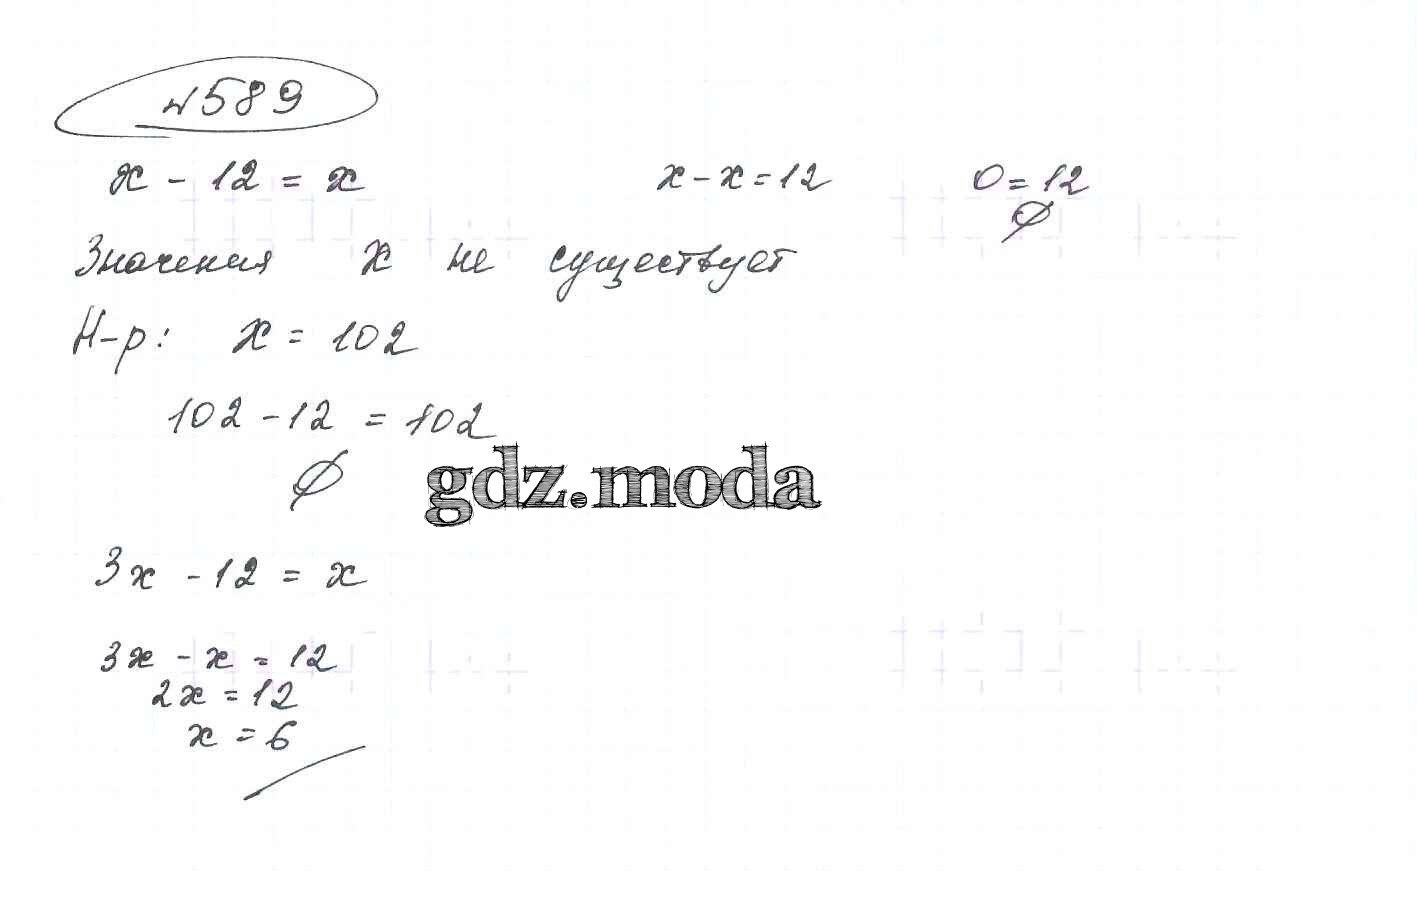 №589
x - 12 = x x - x = 12 0 = 12
∅
Значения x не существует
Н-р: x = 102
102 - 12 = 102
∅
gdz.moda
3x - 12 = x
3x - x = 12
2x = 12
x = 6